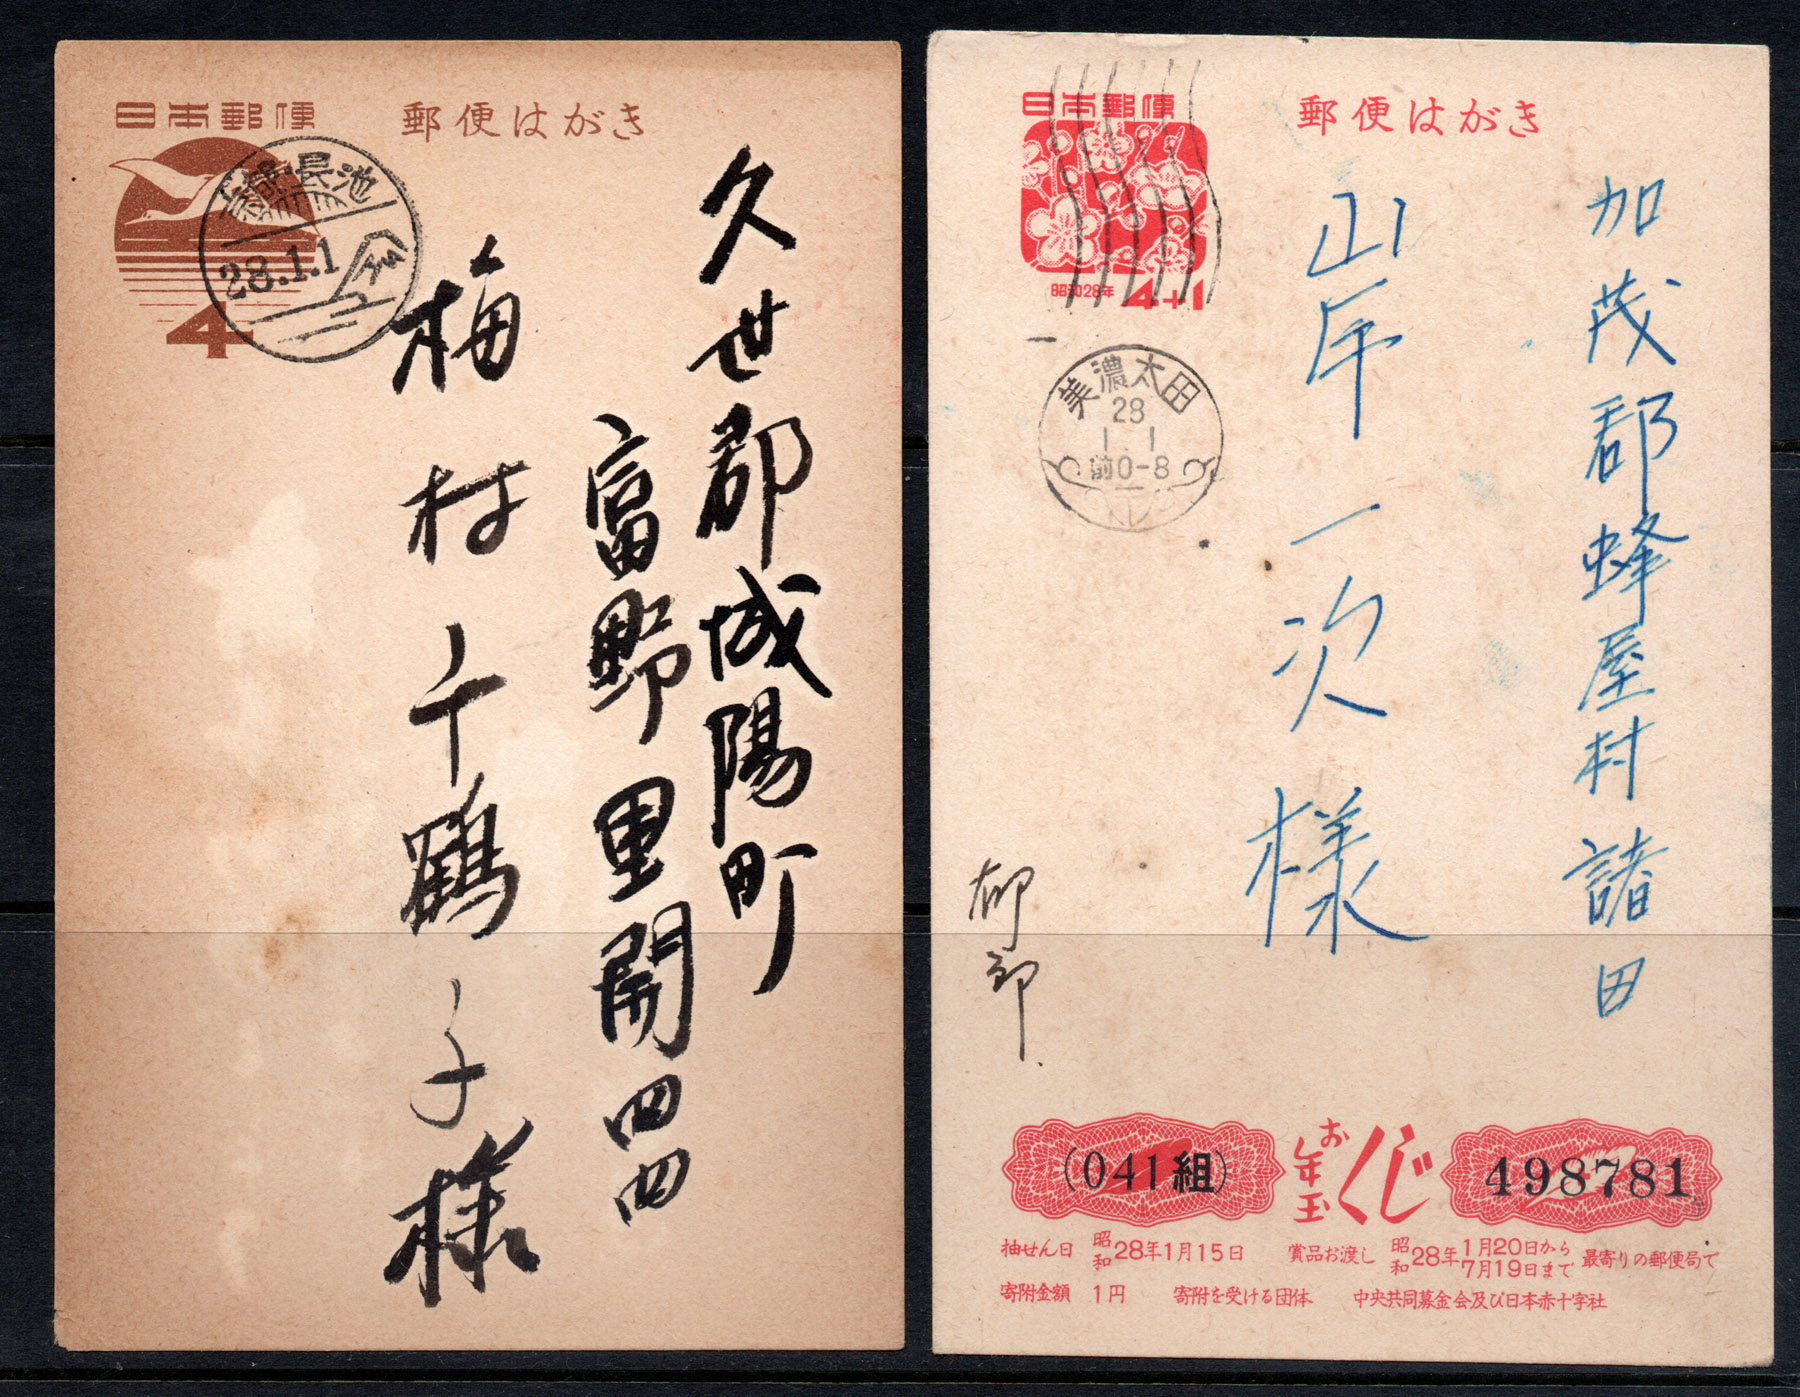 日本郵便
郵便はがき
京都・長池
28.1.1
4
久世郡城陽町
富野里開四四
梅村千鶴子様
日本郵便
郵便はがき
昭和28年 4+1
美濃太田
28
1.1
前0-8
加茂郡蜂屋村諸田
山岸一次様
(041組)
お年玉くじ
498781
抽せん日 昭和28年1月15日 賞品お渡し 昭和28年1月20日から7月19日まで 最寄りの郵便局で
寄附金額 1円 寄附を受ける団体 中央共同募金会及び日本赤十字社